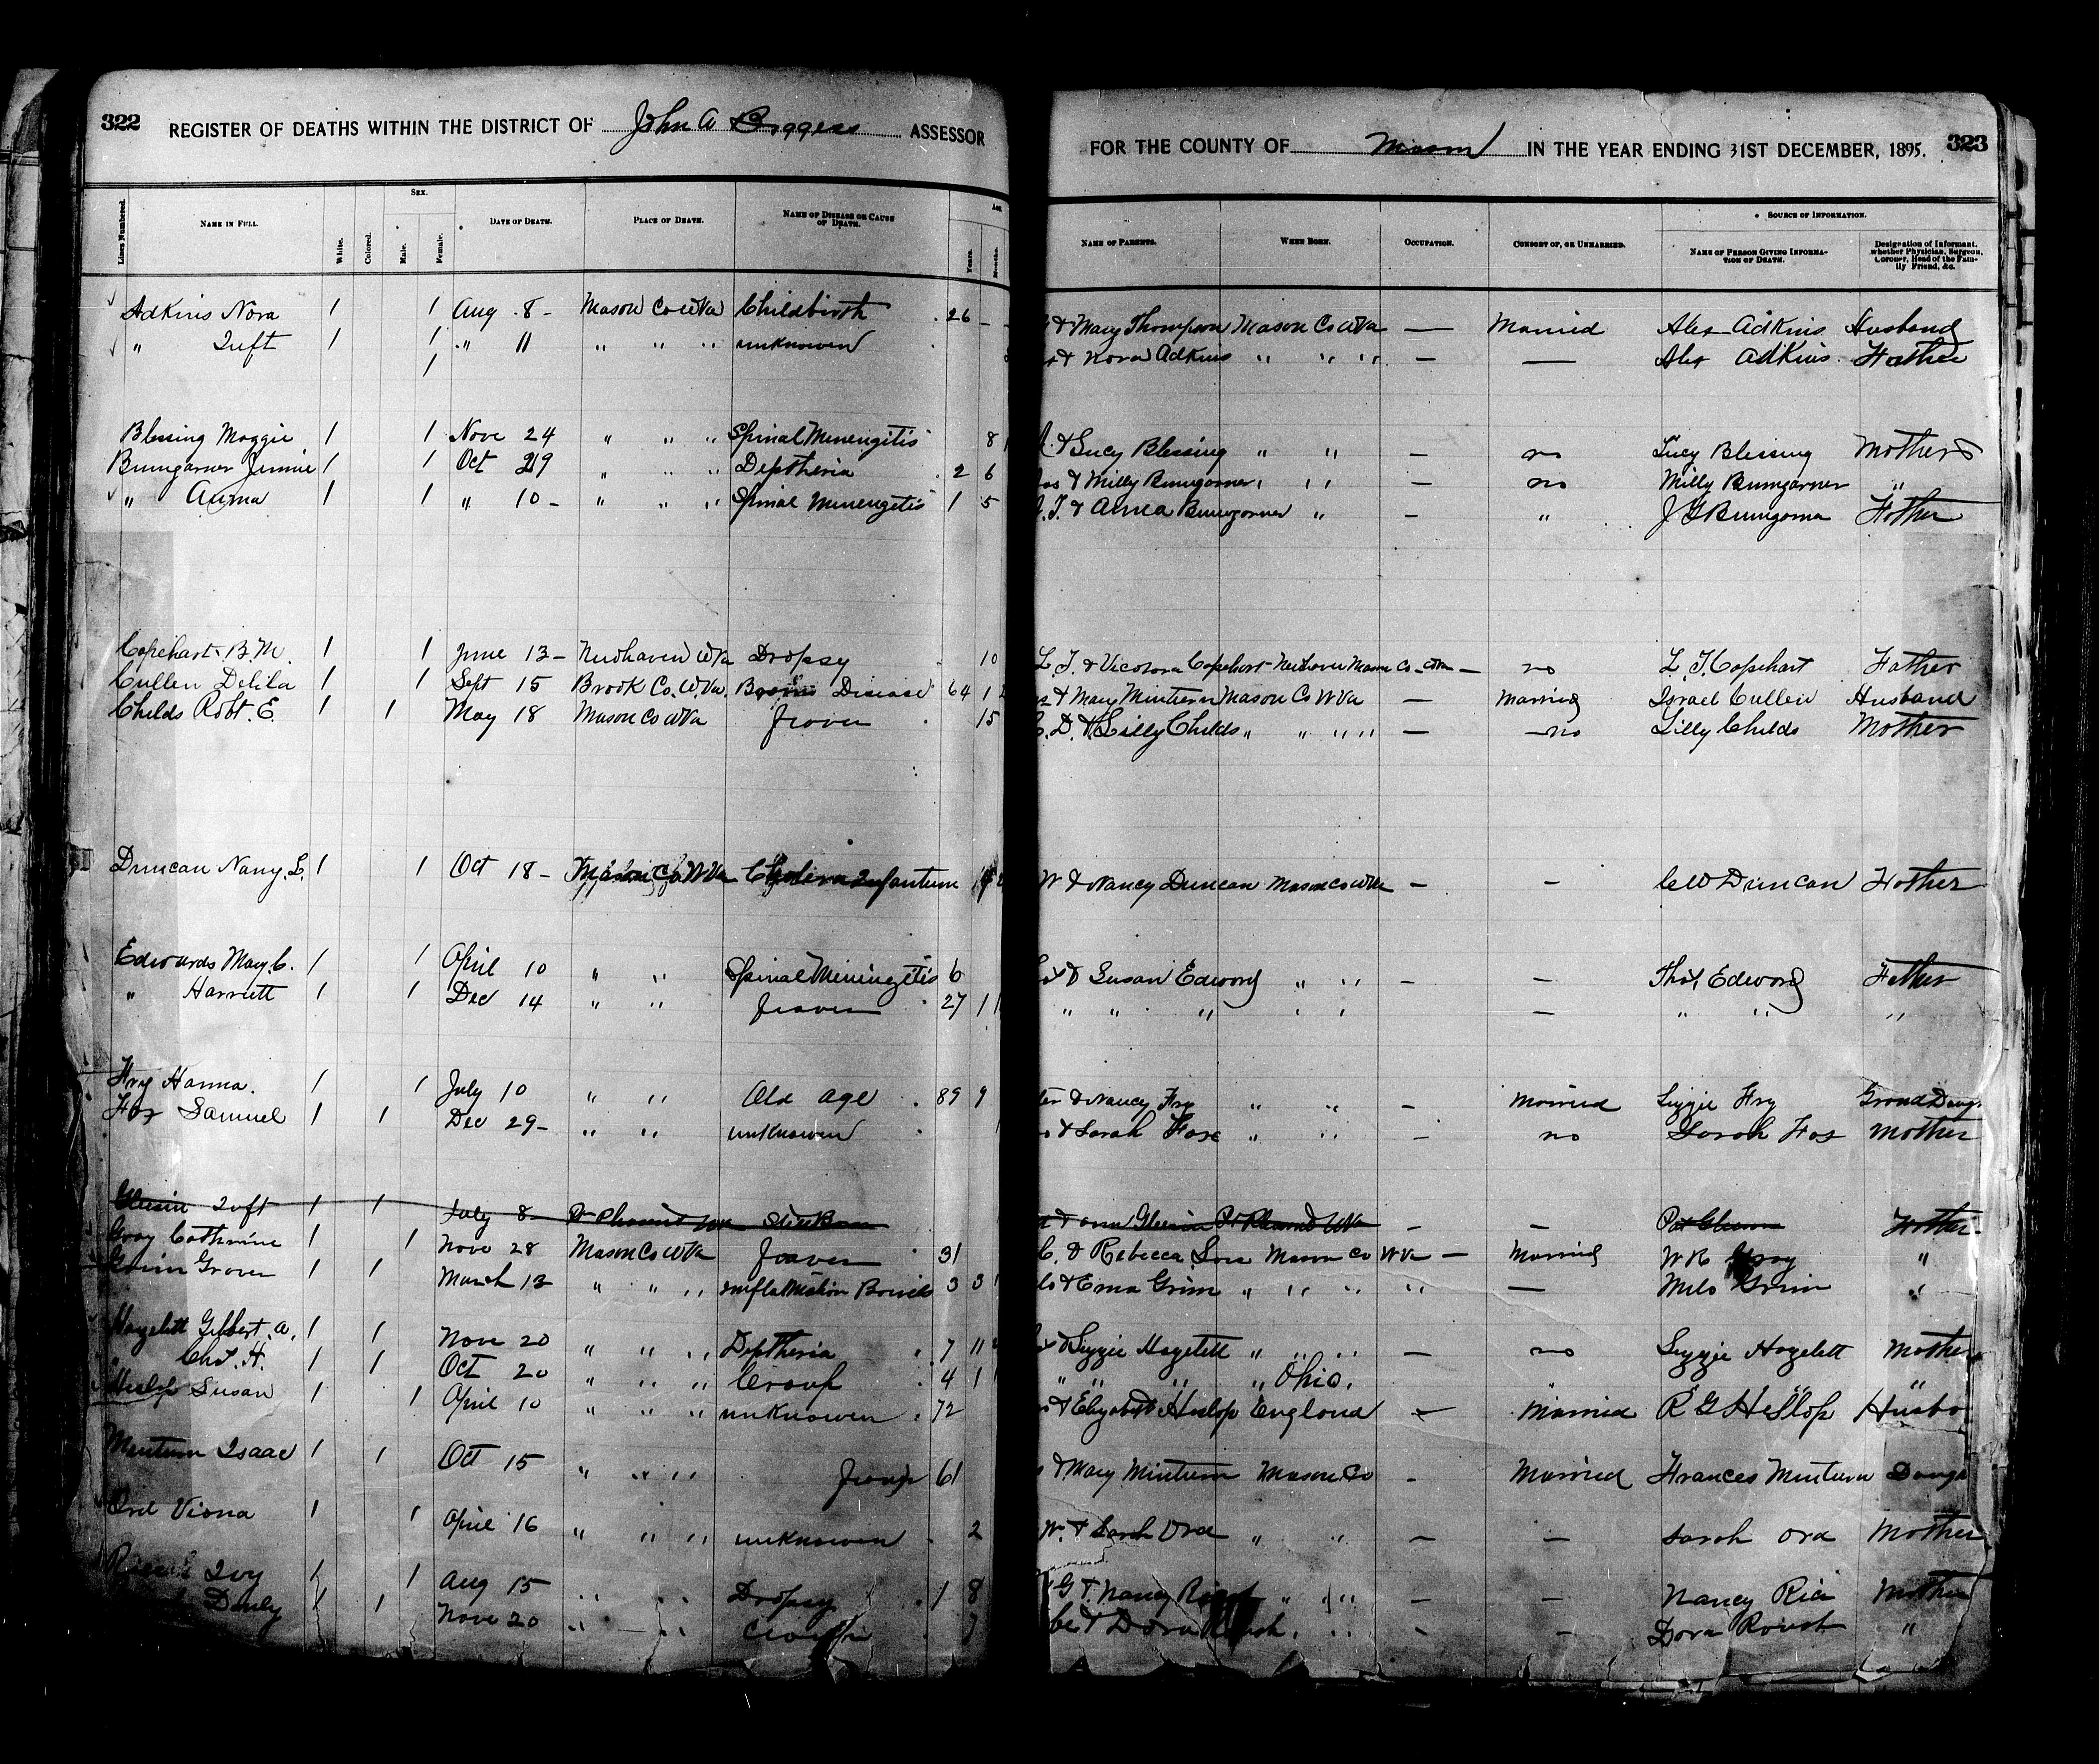 322 REGISTER OF DEATHS WITHIN THE DISTRICT OF John A Boggess ASSESSOR
Lines Numbered. NAME IN FULL. White. Colored. SEX. Male. Female. DATE OF DEATH. PLACE OF DEATH. NAME OF DISEASE OR CAUSE OF DEATH. AGE. Years. Months.
Adkins Nora 1 1 Aug 8 - Mason Co W Va Childbirth 26 -
" Inft 1 1 " 11 " " " unknowen
1
Blessing Maggie 1 1 Nove 24 " " " Spinal Menengitis 8
Bumgarner Jennie 1 1 Oct 29 " " " Deptheria 2 6
" Anna 1 1 " 10 - " " " Spinal Menengetis 1 5
Copehart B.M. 1 1 June 13 - Newhaven W Va Dropsy 10
Cullen Delila 1 1 Sept 15 Brook Co. W. Va. Disease 64 1
Childs Robt. E. 1 1 May 18 Mason Co W Va 15
Duncan Nany. L. 1 1 Oct 18 - Mason Co W Va Cholera Infantum
Edwards Mary. C. 1 1 April 10 " " Spinal Meningitis 6
" Harriett 1 1 Dec 14 " " Feaver 27 11
Fry Hanna. 1 1 July 10 " " Old age 89 9
Fox Samuel 1 1 Dec 29 - " " unknowen
Inft 1 1 July 8 - Pt Pleasant W Va Still Born
Gray Cathrine 1 1 Nove 28 Mason Co W Va Feaver 31
Grim Grover 1 1 March 13 " " " Inflamation Bowels 3 3
Hazelett Gilbert. A. 1 1 Nove 20 " " " Deptheria 7 11
" Chs. H. 1 1 Oct 20 " " " Croup 4 1
Heslop Susan 1 1 April 10 " " " unknowen 72
Minturn Isaac 1 1 Oct 15 " " " 61
Ord Viona 1 1 April 16 " " " unknowen 2
Ivy 1 1 Aug 15 " " Dropsy 1 8
1 1 Nove 20 " "
FOR THE COUNTY OF Mason IN THE YEAR ENDING 31ST DECEMBER, 1895. 323
NAME OF PARENTS. WHEN BORN. OCCUPATION. CONSORT OF, OR UNMARRIED. SOURCE OF INFORMATION. NAME OF PERSON GIVING INFORMATION OF DEATH. Designation of Informant, whether Physician, Surgeon, Coroner, Head of the Family Friend, &c.
& Mary Thompson Mason Co W Va — Married Alex Adkins Husband
& Nora Adkins " " " — — Alex Adkins Father
& Lucy Blessing " " — no Lucy Blessing Mother
& Milly Bumgarner " " — no Milly Bumgarner "
J. T. & Anna Bumgarner " — " Bumgarner Father
L. T. & Copehart Newhaven Mason Co. W Va — no L. T. Copehart Father
& Mary Minturn Mason Co W Va — Married Israel Cullen Husband
C. D. & Lilly Childs " " " " — no Lilly Childs Mother
W & Nancy Duncan Mason Co W Va — — C W Duncan Father
& Susan Edwards " " — — Thos. Edwards Father
" " " " " — " " "
& Nancy Fry " " — Married Lizzie Fry Grand Daug
& Sarah Fox " " — no Sarah Fox Mother
Pt Pleasant W Va — — Father
C. & Rebecca Mason Co W Va — Married W R Gray "
& Ema Grim " " " " — Milo Grim "
& Lizzie Hazelett " " " — no Lizzie Hazelett Mother
" " " " Ohio. " " "
& Elizabeth Heslop England — Married R G Heslop Husba
& Mary Minturn Mason Co — Married Frances Minturn Daug
W. & Sarah Ord " " — — Sarah Ord Mother
G & Nancy " " " — — Nancy Mother
& Dora Roush " " — — Dora Roush "